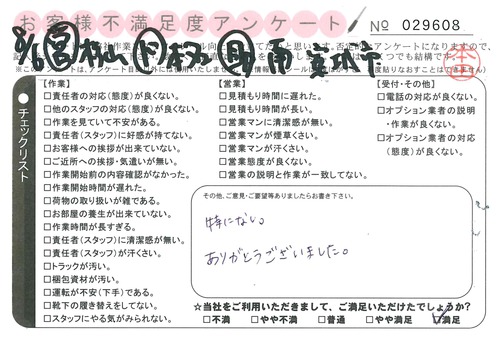 お客様不満足度アンケート
№ 029608
【作業】
□責任者の対応(態度)が良くない。
□他のスタッフの対応(態度)が良くない。
□作業を見ていて不安がある。
□責任者(スタッフ)に好感が持てない。
□お客様への挨拶が出来ていない。
□ご近所への挨拶・気遣いが無い。
□作業開始前の内容確認がなかった。
□作業開始時間が遅れた。
□荷物の取り扱いが雑である。
□お部屋の養生が出来ていない。
□作業時間が長すぎる。
□責任者(スタッフ)に清潔感が無い。
□責任者(スタッフ)が汗くさい。
□トラックが汚い。
□梱包資材が汚い。
□運転が不安(下手)である。
□靴下の履き替えをしてない。
□スタッフにやる気がみられない。
【営業】
□見積もり時間に遅れた。
□見積もり時間が長い。
□営業マンに清潔感が無い。
□営業マンが煙草くさい。
□営業マンが汗くさい。
□営業態度が良くない。
□営業の説明と作業が一致してない。
【受付・その他】
□電話の対応が良くない。
□オプション業者の説明
・作業が良くない。
□オプション業者の対応
(態度)が良くない。
チェックリスト
その他、ご意見・ご要望等ありましたらお書き下さい。
特にない。
ありがとうございました。
☆当社をご利用いただきまして、ご満足いただけたでしょうか?
□不満 □やや不満 □普通 □やや満足 ☑満足